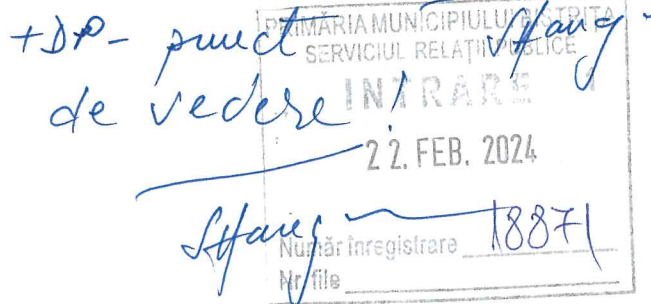 +DP- punct
de vedere!
PRIMĂRIA MUNICIPIULUI BISTRIȚA
SERVICIUL RELAȚII PUBLICE
INTRARE
22. FEB. 2024
Număr înregistrare 18871
Nr. file